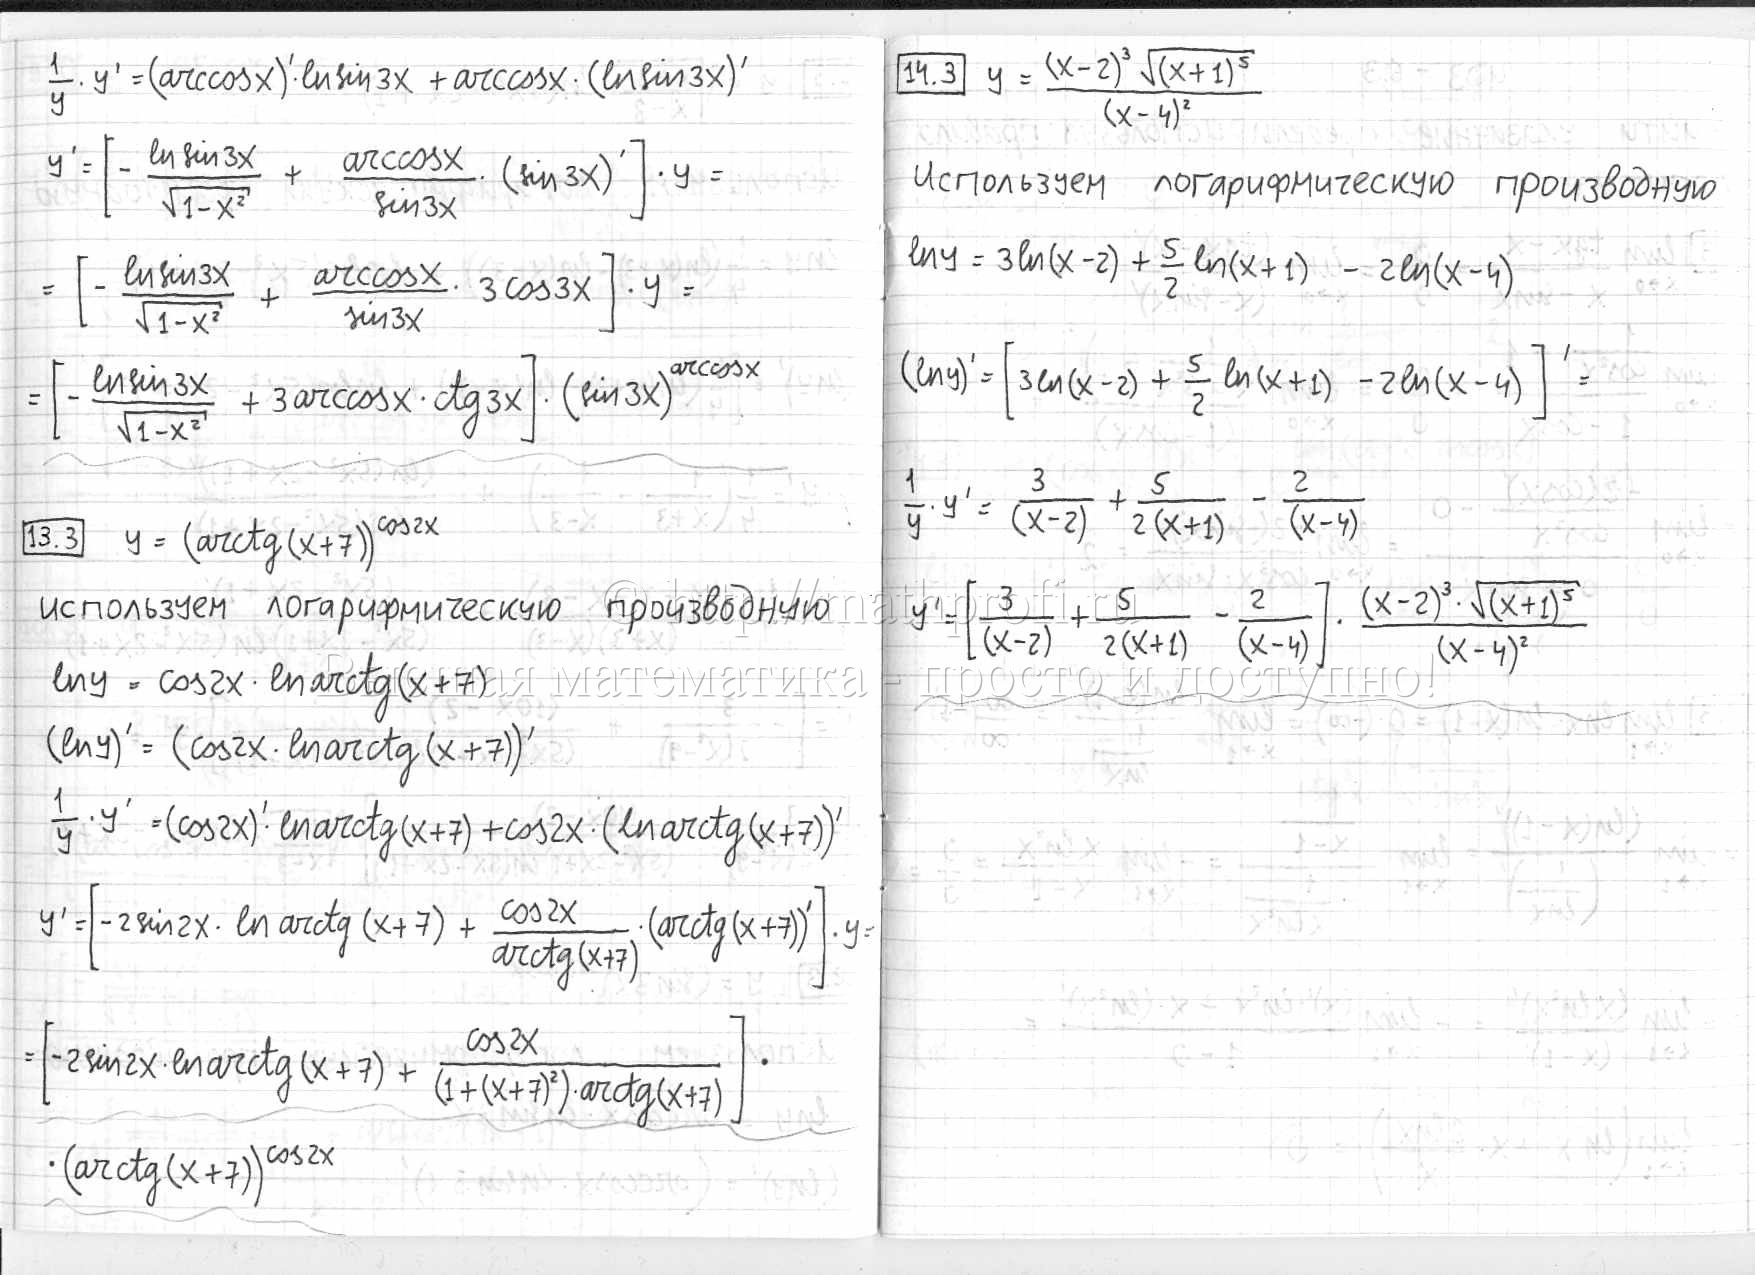 1/y · y' = (arccosx)' · lnsin3x + arccosx · (lnsin3x)'
y' = [ - lnsin3x/√(1-x²) + arccosx/sin3x · (sin3x)' ] · y =
= [ - lnsin3x/√(1-x²) + arccosx/sin3x · 3cos3x ] · y =
= [ - lnsin3x/√(1-x²) + 3arccosx · ctg3x ] · (sin3x)^arccosx
13.3 y = (arctg(x+7))^cos2x
используем логарифмическую производную
lny = cos2x · lnarctg(x+7)
(lny)' = (cos2x · lnarctg(x+7))'
1/y · y' = (cos2x)' · lnarctg(x+7) + cos2x · (lnarctg(x+7))'
y' = [ -2sin2x · ln arctg(x+7) + cos2x/arctg(x+7) · (arctg(x+7))' ] · y =
= [ -2sin2x · lnarctg(x+7) + cos2x/((1+(x+7)²) · arctg(x+7)) ] ·
· (arctg(x+7))^cos2x
14.3 y = (x-2)³ √(x+1)⁵ / (x-4)²
Используем логарифмическую производную
lny = 3ln(x-2) + 5/2 ln(x+1) - 2ln(x-4)
(lny)' = [ 3ln(x-2) + 5/2 ln(x+1) - 2ln(x-4) ]' =
1/y · y' = 3/(x-2) + 5/2(x+1) - 2/(x-4)
y' = [ 3/(x-2) + 5/2(x+1) - 2/(x-4) ] · (x-2)³ · √(x+1)⁵ / (x-4)²
© http://mathprofi.ru
Высшая математика - просто и доступно!